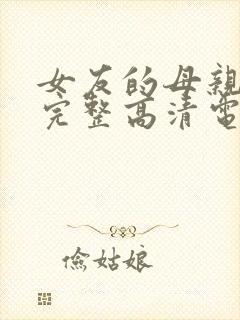 女友的母親
完整高清電
儉姑娘